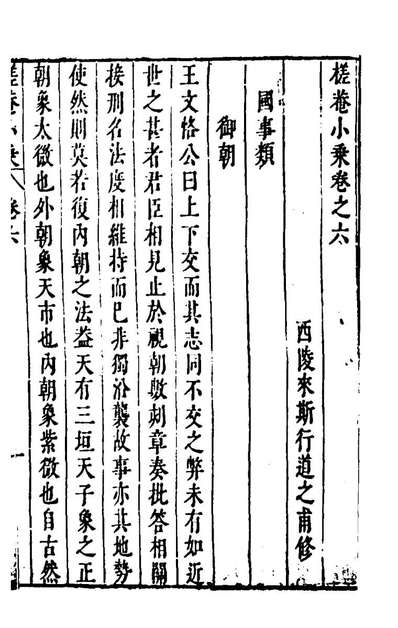 槎菴小乗卷之六
西陵來斯行道之甫修
國事類
御朝
王文恪公曰上下交而其志同不交之弊未有如近
世之甚者君臣相見止於視朝數刻章奏批答相關
接刑名法度相維持而已非獨沿襲故事亦其地勢
使然則莫若復内朝之法葢天有三垣天子象之正
朝象太微也外朝象天市也内朝象紫微也自古然
槎菴小乗 卷六 一